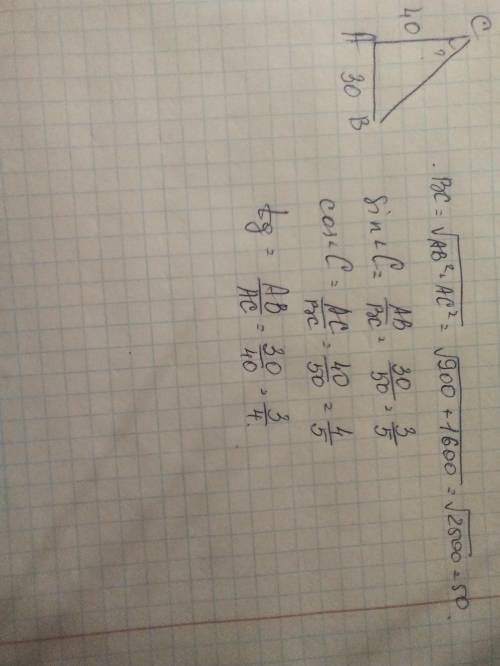 C
40
?
A
30
B
BC = √AB²+AC² = √900 + 1600 = √2500 = 50.
sin ∠ C = AB/BC = 30/50 = 3/5
cos ∠ C = AC/BC = 40/50 = 4/5
tg = AB/AC = 30/40 = 3/4.